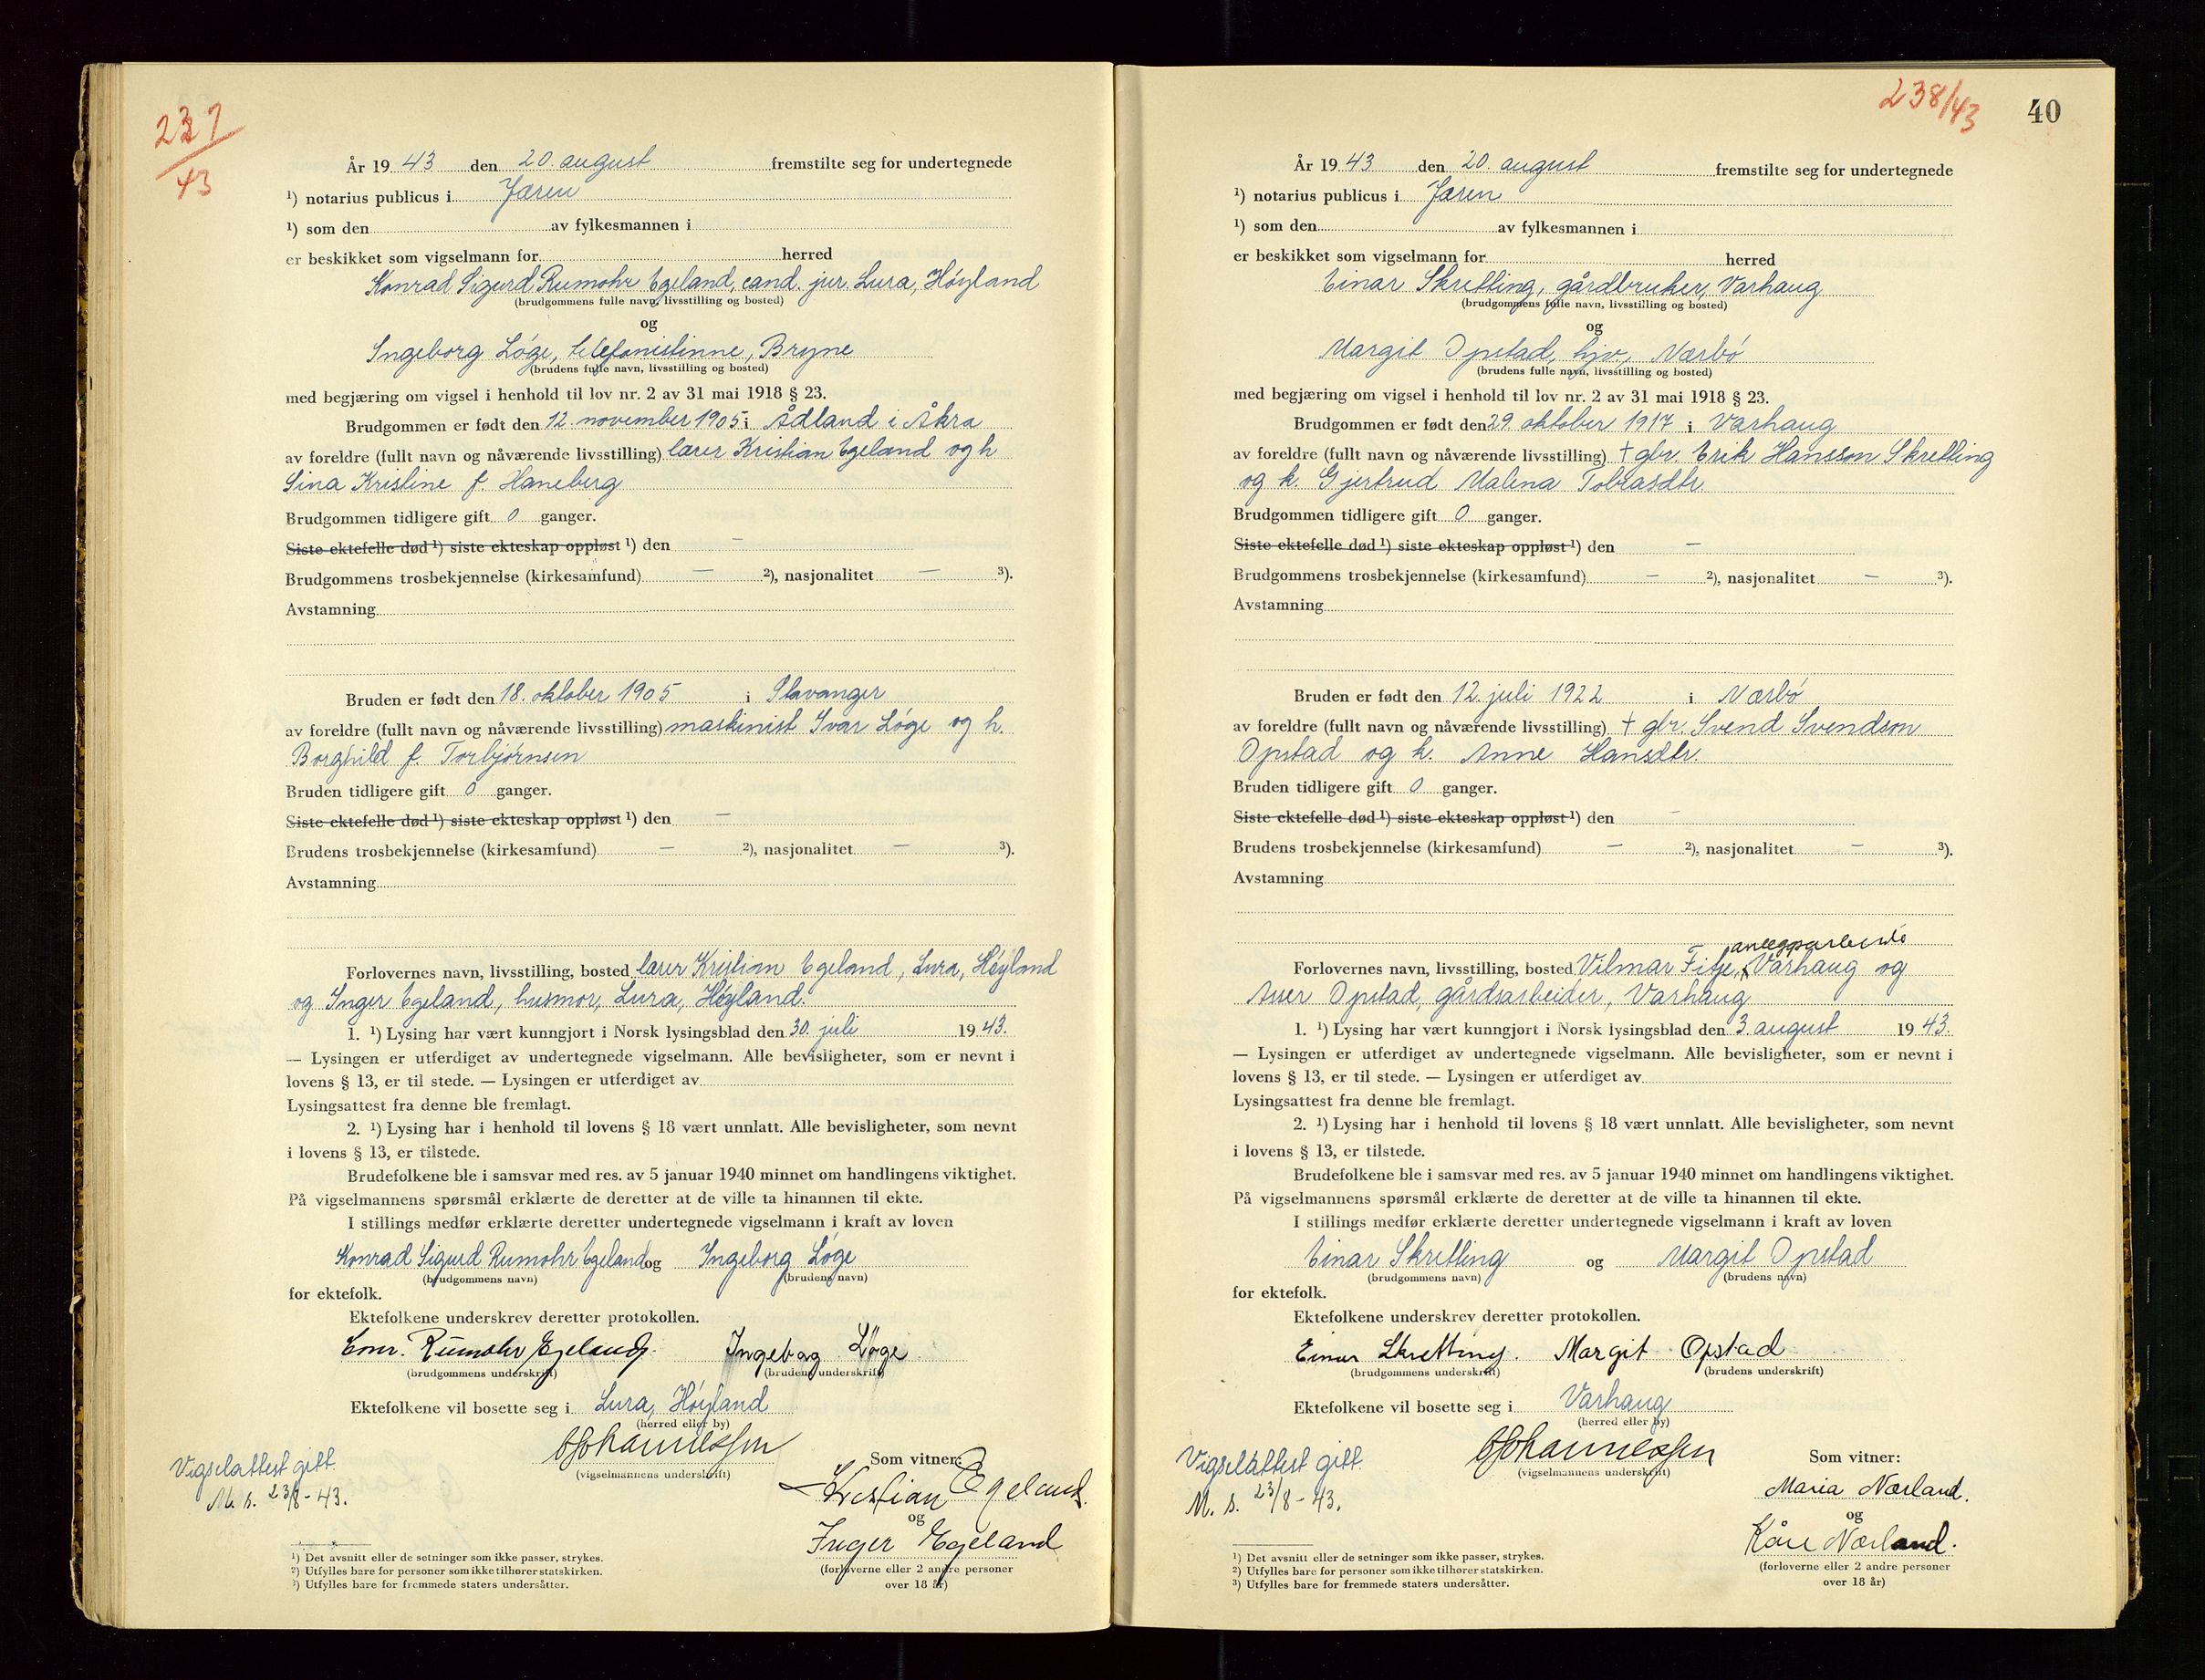 237
43
År 19 43 den 20. august fremstilte seg for undertegnede
¹) notarius publicus i Jæren
¹) som den av fylkesmannen i
er beskikket som vigselmann for herred
Konrad Sigurd Rumohr Egeland, cand. jur. Lura, Høyland
(brudgommens fulle navn, livsstilling og bosted)
og
Ingeborg Løge, telefonistinne, Bryne
(brudens fulle navn, livsstilling og bosted)
med begjæring om vigsel i henhold til lov nr. 2 av 31 mai 1918 § 23.
Brudgommen er født den 12. november 1905 i Ådland i Åkra
av foreldre (fullt navn og nåværende livsstilling) lærer Kristian Egeland og h
Sina Kristine f. Haneberg
Brudgommen tidligere gift 0 ganger.
Siste ektefelle død ¹) siste ekteskap oppløst ¹) den —
Brudgommens trosbekjennelse (kirkesamfund) — ²), nasjonalitet — ³).
Avstamning
Bruden er født den 18. oktober 1905 i Stavanger
av foreldre (fullt navn og nåværende livsstilling) maskinist Ivar Løge og h.
Borghild f. Torbjørnsen
Bruden tidligere gift 0 ganger.
Siste ektefelle død ¹) siste ekteskap oppløst ¹) den —
Brudens trosbekjennelse (kirkesamfund) — ²), nasjonalitet — ³).
Avstamning
Forlovernes navn, livsstilling, bosted lærer Kristian Egeland, Lura, Høyland
og Inger Egeland, husmor, Lura, Høyland.
1. ¹) Lysing har vært kunngjort i Norsk lysingsblad den 30. juli 19 43.
— Lysingen er utferdiget av undertegnede vigselmann. Alle bevisligheter, som er nevnt i
lovens § 13, er til stede. — Lysingen er utferdiget av
Lysingsattest fra denne ble fremlagt.
2. ¹) Lysing har i henhold til lovens § 18 vært unnlatt. Alle bevisligheter, som nevnt
i lovens § 13, er tilstede.
Brudefolkene ble i samsvar med res. av 5 januar 1940 minnet om handlingens viktighet.
På vigselmannens spørsmål erklærte de deretter at de ville ta hinannen til ekte.
I stillings medfør erklærte deretter undertegnede vigselmann i kraft av loven
Konrad Sigurd Rumohr Egeland og Ingeborg Løge
(brudgommens navn) (brudens navn)
for ektefolk.
Ektefolkene underskrev deretter protokollen.
Conr. Rumohr Egeland. Ingeborg Løge.
(brudgommens underskrift) (brudens underskrift)
Ektefolkene vil bosette seg i Lura, Høyland
(herred eller by)
(vigselmannens underskrift)
Vigselattest gitt.
M. s. 23/8-43.
Som vitner:
Kristian Egeland.
og
Inger Egeland
(forloverne eller 2 andre personer
over 18 år)
¹) Det avsnitt eller de setninger som ikke passer, strykes.
²) Utfylles bare for personer som ikke tilhører statskirken.
³) Utfylles bare for fremmede staters undersåtter.
238/43
40
År 19 43 den 20. august fremstilte seg for undertegnede
¹) notarius publicus i Jæren
¹) som den av fylkesmannen i
er beskikket som vigselmann for herred
Einar Skretting, gårdbruker, Varhaug
(brudgommens fulle navn, livsstilling og bosted)
og
Margit Opstad, hjv, Nærbø
(brudens fulle navn, livsstilling og bosted)
med begjæring om vigsel i henhold til lov nr. 2 av 31 mai 1918 § 23.
Brudgommen er født den 29 oktober 1917 i Varhaug
av foreldre (fullt navn og nåværende livsstilling) † gbr. Erik Hansson Skretting
og h. Gjertrud Malena Tobiasdtr.
Brudgommen tidligere gift 0 ganger.
Siste ektefelle død ¹) siste ekteskap oppløst ¹) den —
Brudgommens trosbekjennelse (kirkesamfund) — ²), nasjonalitet — ³).
Avstamning
Bruden er født den 12. juli 1922 i Nærbø
av foreldre (fullt navn og nåværende livsstilling) † gbr. Svend Svendson
Opstad og h. Anne Hansdtr.
Bruden tidligere gift 0 ganger.
Siste ektefelle død ¹) siste ekteskap oppløst ¹) den —
Brudens trosbekjennelse (kirkesamfund) — ²), nasjonalitet — ³).
Avstamning
Forlovernes navn, livsstilling, bosted Vilmar Fitje, Varhaug og
Opstad, gårdsarbeider, Varhaug
1. ¹) Lysing har vært kunngjort i Norsk lysingsblad den 3 august 19 43.
— Lysingen er utferdiget av undertegnede vigselmann. Alle bevisligheter, som er nevnt i
lovens § 13, er til stede. — Lysingen er utferdiget av
Lysingsattest fra denne ble fremlagt.
2. ¹) Lysing har i henhold til lovens § 18 vært unnlatt. Alle bevisligheter, som nevnt
i lovens § 13, er tilstede.
Brudefolkene ble i samsvar med res. av 5 januar 1940 minnet om handlingens viktighet.
På vigselmannens spørsmål erklærte de deretter at de ville ta hinannen til ekte.
I stillings medfør erklærte deretter undertegnede vigselmann i kraft av loven
Einar Skretting og Margit Opstad
(brudgommens navn) (brudens navn)
for ektefolk.
Ektefolkene underskrev deretter protokollen.
Einar Skretting. Margit Opstad
(brudgommens underskrift) (brudens underskrift)
Ektefolkene vil bosette seg i Varhaug
(herred eller by)
(vigselmannens underskrift)
Vigselattest gitt.
M. s. 23/8-43.
Som vitner:
Maria Nærland.
og
Kåre Nærland.
(forloverne eller 2 andre personer
over 18 år)
¹) Det avsnitt eller de setninger som ikke passer, strykes.
²) Utfylles bare for personer som ikke tilhører statskirken.
³) Utfylles bare for fremmede staters undersåtter.